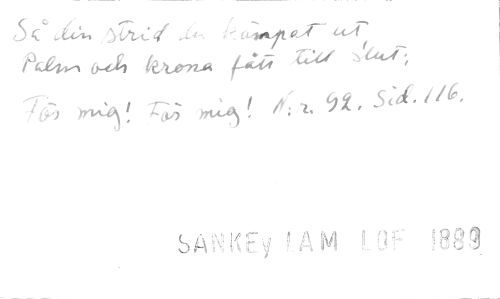 Så din strid du kämpat ut
Palm och krona fått till slut;
För mig! För mig! N:r. 92. Sid. 116.
SANKEY LAM LOF 1889